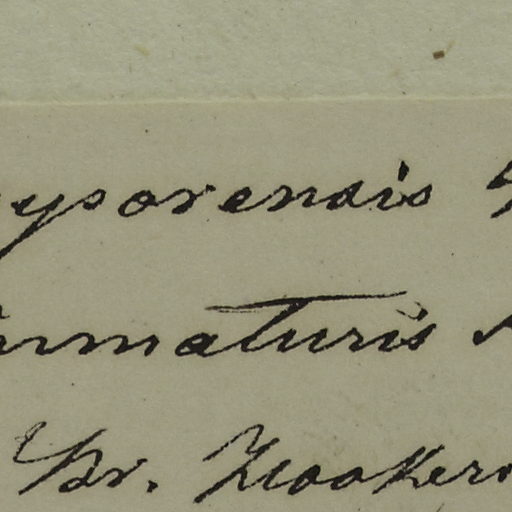 ysorensis
rmaturis
Dr. Hooker